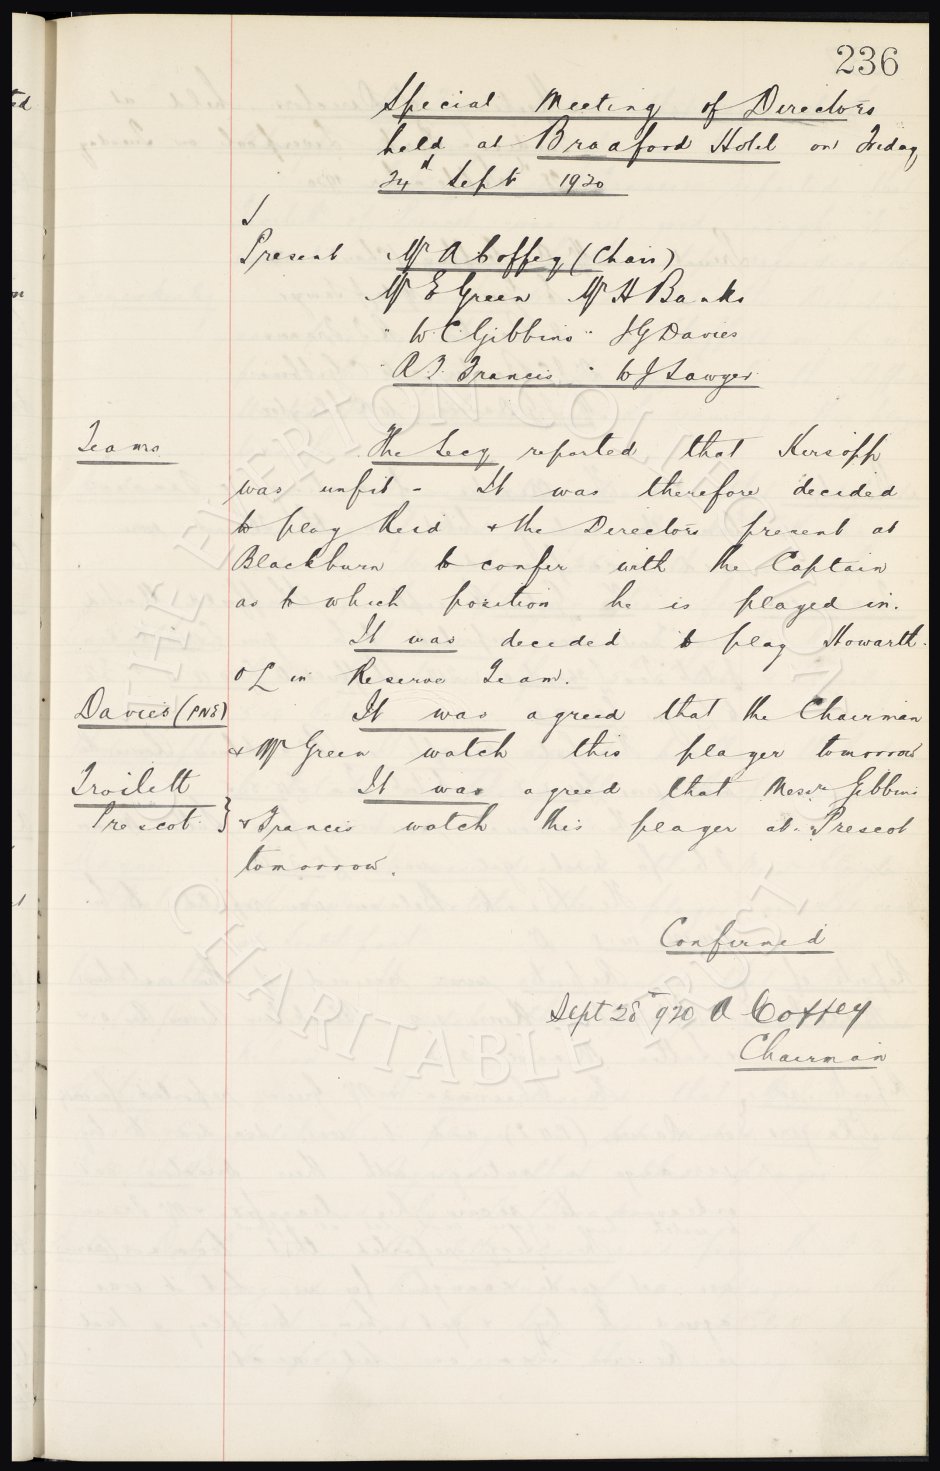 236
Special Meeting of Directors
held at Bradford Hotel on Friday
24th Sept 1920
Present Mr A Coffey (Chair)
Mr E Green Mr H Banks
" W C Gibbins " J G Davies
" A T Francis " W J Sawyer
Teams The Secy reported that Kersopp
was unfit - It was therefore decided
to play Reid & the Directors present at
Blackburn to confer with the Captain
as to which position he is played in.
It was decided to play Howarth
O L in Reserve Team.
Davies (PNE) It was agreed that the Chairman
& Mr Green watch this player tomorrow
Troilett It was agreed that Messrs Gibbins
Prescot } & Francis watch this player at Prescot
tomorrow.
Confirmed
Sept 28th 920 A Coffey
Chairman
THE EVERTON COLLECTION
CHARITABLE TRUST